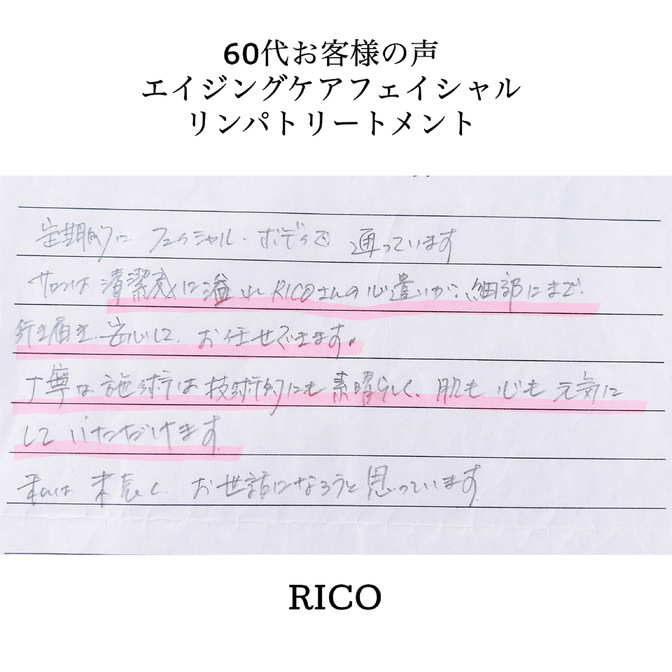 60代お客様の声
エイジングケアフェイシャル
リンパトリートメント
定期的に フェイシャル・ボディで 通っています
サロンは 清潔感に溢れ RICOさんの心遣いが、細部にまで
行き届き、安心して、お任せできます。
丁寧な施術は技術的にも 素晴らしく、肌も 心も 元気に
して いただけます
私は 末長く お世話になろうと思っています
RICO